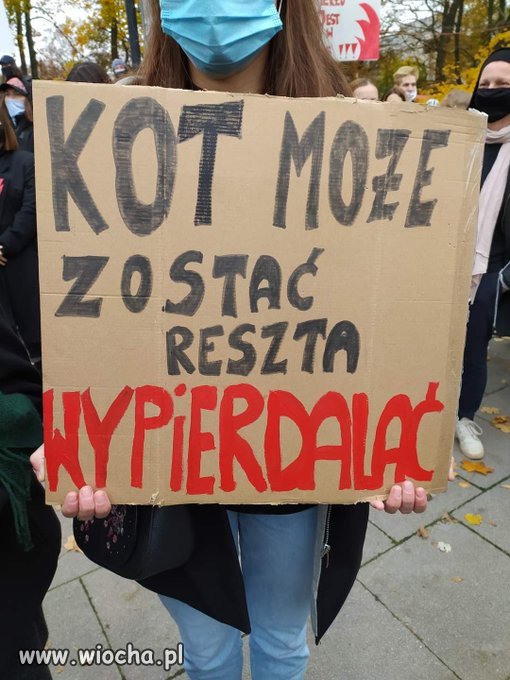 JEST
KOT MOŻE
ZOSTAĆ
RESZTA
WYPIERDALAĆ
www.wiocha.pl